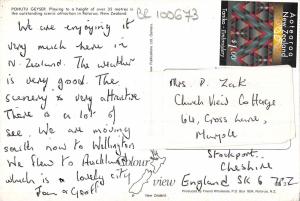 POHUTU GEYSER Playing to a height of over 30 metres is
the outstanding scenic attraction in Rotorua, New Zealand
We are enjoying it
very much here in
N. Zealand. The weather
is very good. The
scenery is very attractive
There is a lot of
see. We are moving
south now to Wellington
We flew to Auckland
which is a lovely city
Joan & Geoff
BE 100673
colour
view
New Zealand
Aotearoa
New Zealand
Mrs D. Zak
Church View Cottage
Gross Lane,
Marple
Stockport
Cheshire
England SK6